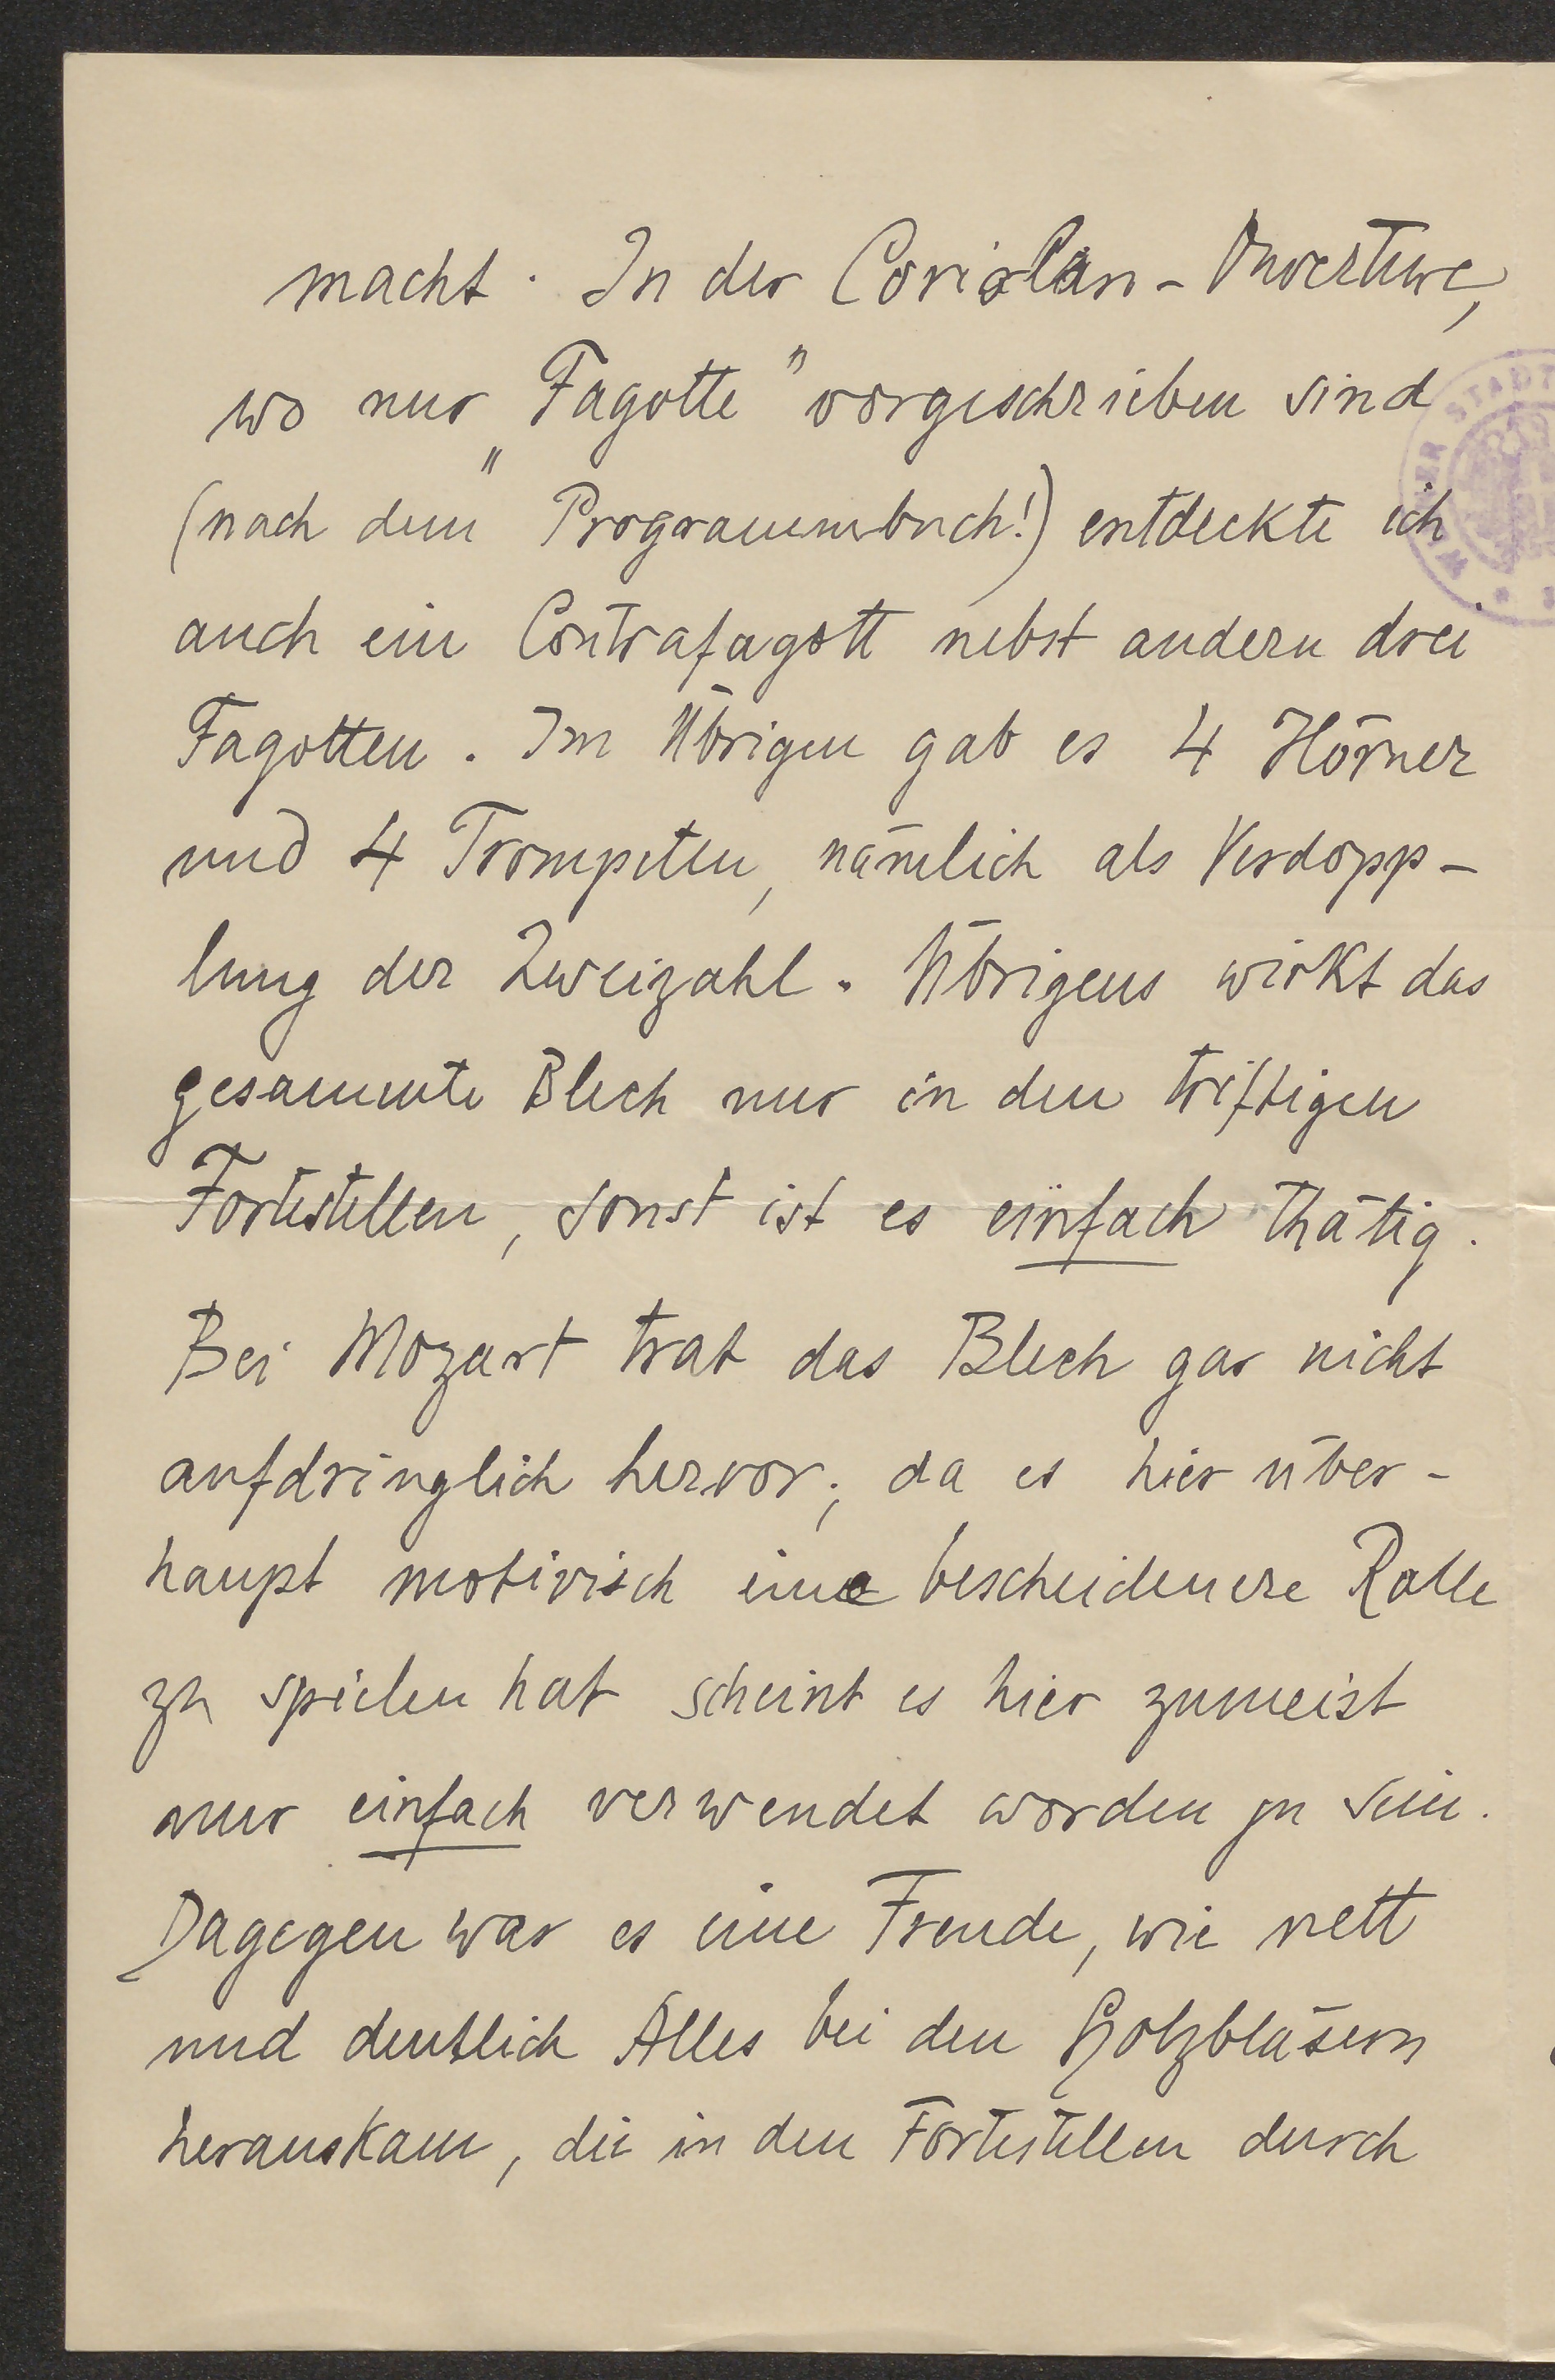 macht. In der Coriolan-Ouverture,
wo nur „Fagotte" vorgeschrieben sind
(nach dem Programmbuch!) entdeckte ich
auch ein Contrafagott nebst andern drei
Fagotten. Im Übrigen gab es 4 Hörner
und 4 Trompeten, nämlich als Verdopp-
lung der Zweizahl. Übrigens wirkt das
gesammte Blech nur in den triftigen
Fortestellen, sonst ist es einfach thätig.
Bei Mozart trat das Blech gar nicht
aufdringlich hervor; da es hier über-
haupt motivisch eine bescheidenere Rolle
zu spielen hat scheint es hier zumeist
nur einfach verwendet worden zu sein.
Dagegen war es eine Freude, wie nett
und deutlich Alles bei den Holzbläsern
herauskam, die in den Fortestellen durch